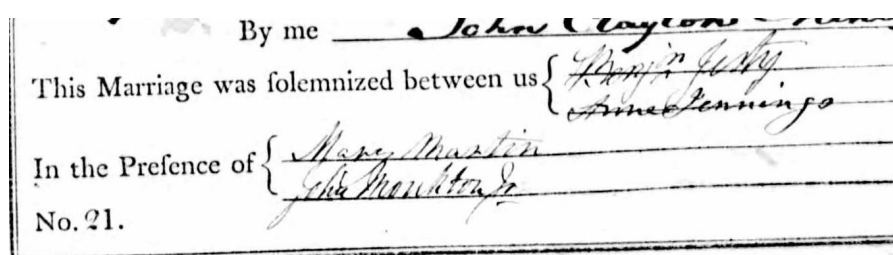 By me John Clayton
This Marriage was ſolemnized between us { Benjn Jesty
Anne Jennings
In the Preſence of { Mary Martin
John Monkton Jr
No. 21.